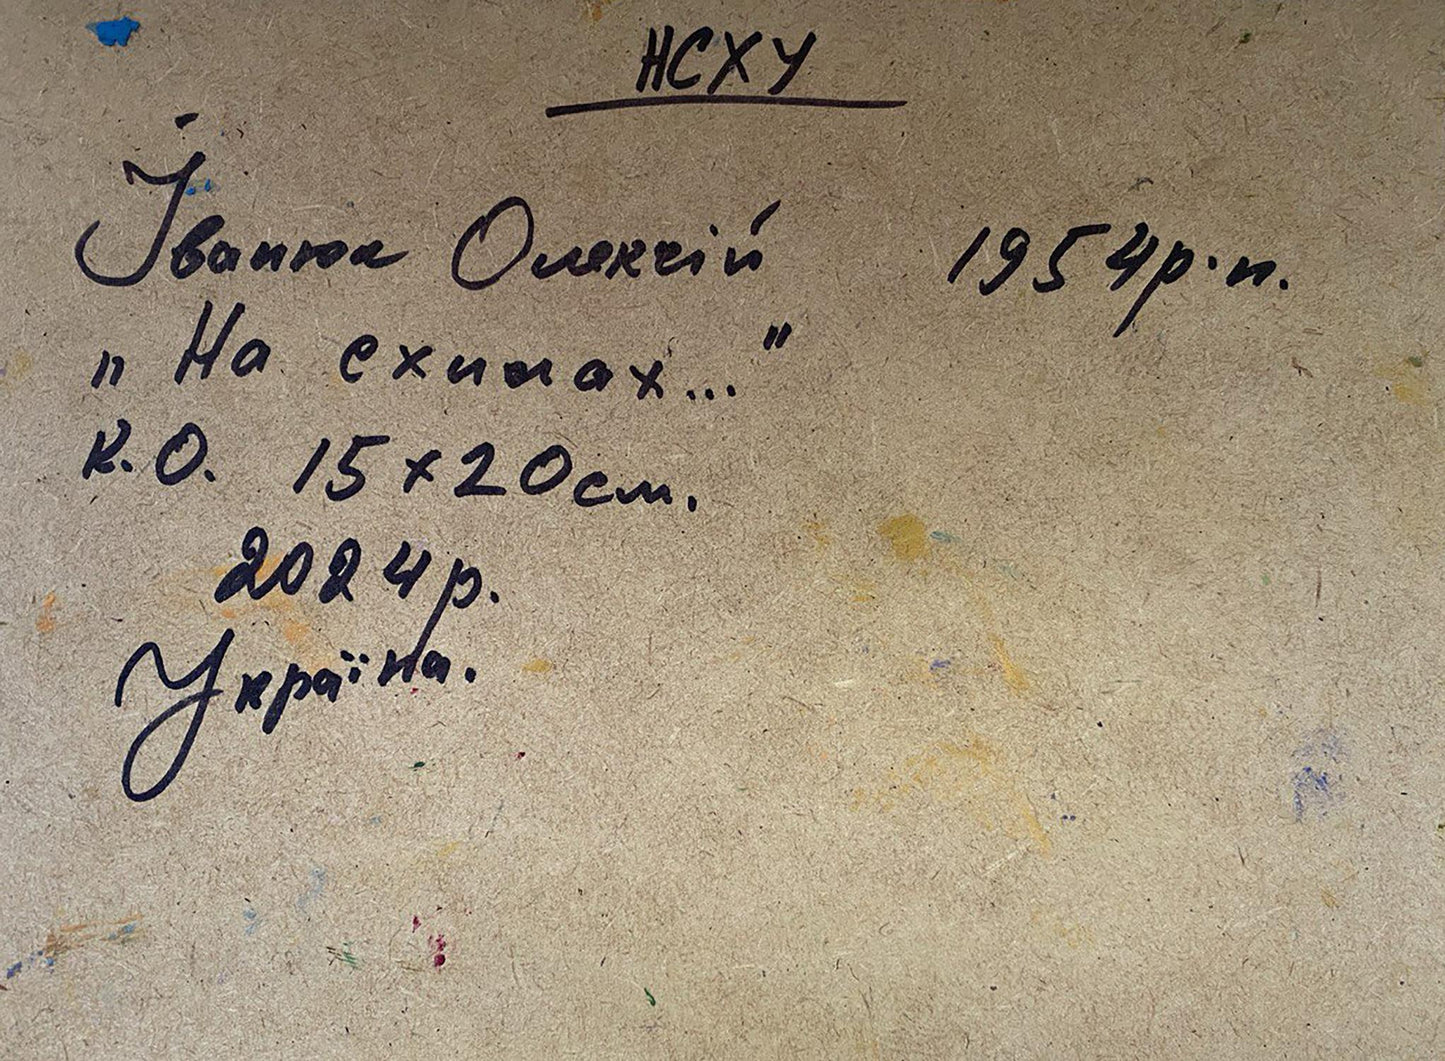 НСХУ
Іванюк Олексій 1954р.н.
"На схилах..."
К.О. 15х20см.
2024р.
Україна.